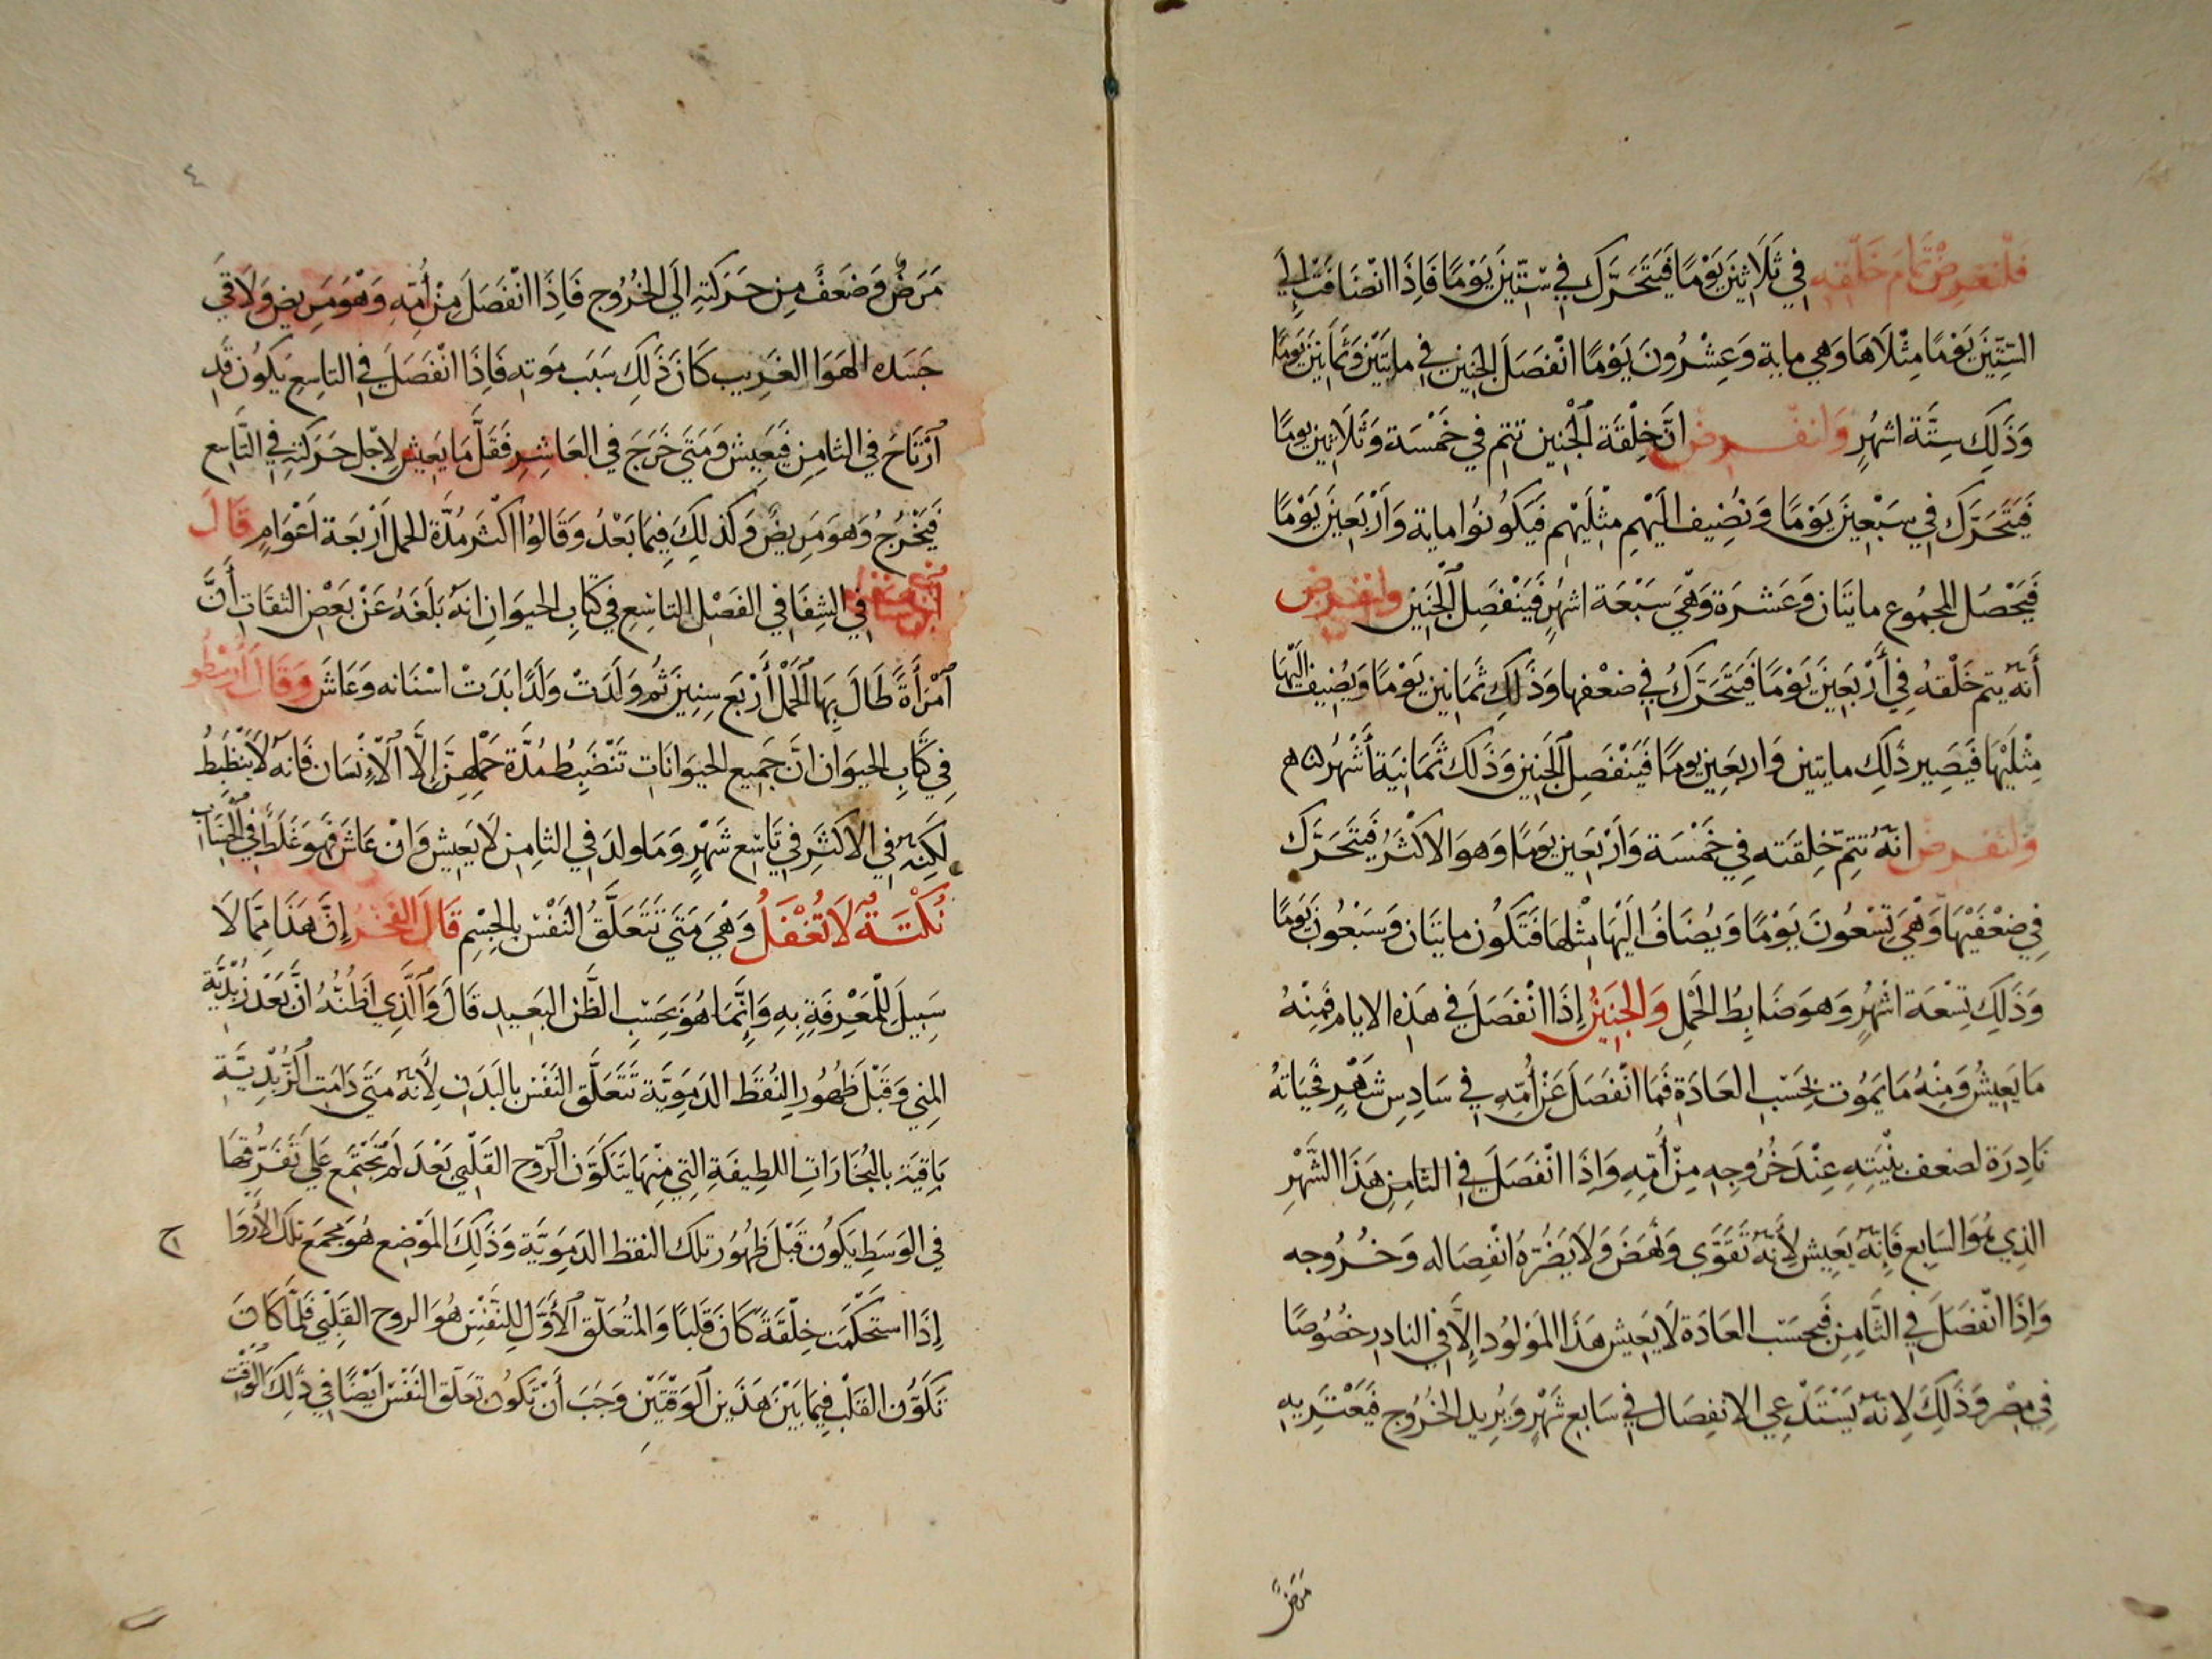 فَلْنَفرِضْ تَمَامَ خَلْقِهِ فِي ثَلَاثِينَ يَوْمًا فَيَتَحَرَّك فِي سِتِّينَ يَوْمًا فَاِذَا انْضَافَتْ اِلَي
السِّتِّينَ يَوْمًا مِثْلَاهَا وَهِي ماية وَعِشْرُونَ يَوْمًا انْفَصَلَ الجَنِين فِي مايتَيْن وَثَمَانِينَ يَوْمًا
وَذَلِكَ سِتَّة اشهُرٍ وَانفرض انَّ خِلْقَة الْجَنِين تتم في خَمْسَة وَثَلَاثِين يومًا
فَيَتَحَرَّك فِي سَبْعِينَ يَوْمًا وَنُضِيف الَيْهِم مِثْلَيْهِم فَيَكُونُوا ماية وَأَرْبَعِينَ يَوْمًا
فَيَحْصُل المجمُوع مايتَان وَعَشرَة وَهْيَ سَبْعَة اشهُرٍ فَيَنْفَصِل الْجَنِين وانفرض
أَنَّهُ يتم خَلْقهُ فِي أَرْبَعِينَ يَوْمًا فَيَتَحَرَّكُ فِي ضعْفها وَذَلِكَ ثَمَانِين يَوْمًا وَيُضِيف الَيْهَا
مِثْلَيْهَا فَيَصِير ذَلِكَ مايتين وَاربَعِين يومًا فَيَنْفَصِل الْجَنِين وَذَلكَ ثَمَانِيَة أَشْهُر
وَلنفرض انَّهُ تتِمّ خِلقته فِي خَمْسَة وَأَرْبَعِين يَومًا وَهوَ الاكْثَرُ فَيَتَحَرَّك
فِي ضعْفَيْهَا وَهْيَ تِسْعُونَ يَوْمًا وَيُضَافُ الَيْهَا مِثْلهَا فَتَكُون مايتَان وَسَبْعُونَ يَومًا
وَذَلِكَ تِسْعَة اشْهُرٍ وَهوَ ضَابِطُ الحَمْلِ وَالجَنِينُ إذَا انْفَصَلَ فِي هَذِه الايام فَمِنْهُ
مَا يَعِيشُ وَمِنْهُ مَا يَمُوت بحَسَب العَادَة فَمَا انْفَصَلَ عَنْ أُمِّه فِي سَادِس شَهْرٍ فَحيَاتهُ
نَادِرَة لضعف بِنْيَتِهِ عِنْدَ خُرُوجِه مِنْ أُمِّهِ وَاِذَا انْفَصَلَ فِي الثامِن هَذَا الشَّهْرِ
الذِي هُوَ السَابِع فَاِنَّهُ يَعِيش لِأَنَّهُ تَقَوَّي وَنَهَضَ وَلَا يَضُرّهُ انْفِصَاله وَخُرُوجه
وَاِذَا انْفَصَلَ فِي الثَّامِن فَبحسَب العَادَة لَا يَعِيش هَذَا المَوْلُود اِلَّا فِي النادِر خصُوصًا
فِي مِصْر وَذَلِكَ لِانَّهُ يَسْتَدْعِي الانفِصَال فِي سَابِع شَهْرٍ وَيُرِيد الخُرُوج فَيَعْتَرِيه
مَرَضٌ
٤
مَرَضٌ وَضَعَفٌ مِن حَرَكَتِهِ اِلَي الخُرُوج فَاِذَا انْفَصَلَ مِنْ أُمِّهِ وَهْوَ مَرِيض وَلَاقَي
جَسَده الهَوَا الغَرِيب كَانَ ذَلِكَ سَبَب مَوته فَاِذَا انْفَصَلَ فِي التاسِع يَكُون قَد
اَرْتَاحَ فِي الثامِن فَيَعِيش وَمَتَي خَرَجَ فِي العَاشِر فَقَلَّ مَا يَعِيش لِاجْل حَرَكَتِهِ فِي التَّاسِع
فَيَخْرُجُ وَهوَ مَرِيضٌ وَكَذلِكَ فِيمَا بَعْدُ وَقَالُوا اكْثَر مُدَّة الحمل أَرْبَعَة أَعْوَامٍ قَالَ
ابْن سِينَا فِي الشِفَا فِي الفَصْل التاسِعِ فِي كتَابِ الحيوَان انَّهُ بَلَغَهُ عَنْ بَعْض الثقَات أَنَّ
اَمْرَأَةً طَالَ بِهَا الْحَمْل أَرْبَع سِنِينَ ثُم وَلَدَتْ وَلَدًا بَدَتْ اسْنَانه وَعَاشَ وَقَالَ أَرِسْطُو
فِي كتَابِ الحيوَان انَّ جَمِيع الحيوَانَات تَنْضَبِطُ مُدَّة حَمْلِهِنَّ إلَّا الْاِنْسَان فَانَّهُ لَا يَنْضَبِطُ
لَكِنَّهُ فِي الاكثَر فِي تَاسِع شَهْرٍ وَمَا ولدَ فِي الثامِن لَا يَعِيش وَاِنْ عَاشَ فَهوَ غَلَطٌ فِي الْحِسَابِ
نُكْتَةٌ لَا تُغْفَلُ وَهْيَ مَتَي تَتَعَلَّقُ النَفْس بِالجِسْمِ قَالَ الفَخْرُ إنَّ هَذَا مِمَّا لَا
سَبِيلَ لِلْمَعْرِفَةِ بِهِ وَإنَّمَا هُوَ بحَسَبِ الظَّن البَعِيد قَالَ وَالَّذِي اَظُنُّهُ انَّ بَعْدَ زُبْدِيَّة
المنِي وَقَبْلَ ظهُورِ النُقَطَ الدَمَوِيَّة تَتَعَلَّق النَفْس بالبَدَن لِأَنَّهُ مَتَي دَامَت الزُّبْدِيَّة
بَاقِيَة بالبُخَارَاتِ اللطِيفَةِ التِي مِنْهَا يَتَكَوَّن الرّوح القَلْبِي بَعْدَ لَمْ تَجْتَمِع عَلَي تَفَرُّقِهَا
فِي الوَسَطِ يَكُون قَبْلَ ظهُورِ تلكَ النقط الدَمَوِيَّة وَذَلِكَ المَوْضِع هُوَ مَجْمَع تلكَ الأَرْوَا ح
إذَا استَحْكَمَت خِلْقَةً كَانَ قَلبًا وَالمتُعَلّق الأَوَّل لِلنَفْس هُوَ الروح القَلْبِي فَلَمَّا كَانَ
تَكَوُّن القَلْب فِيمَا بَيْنَ هَذَين الوَقْتَيْن وَجَبَ أَنْ تَكُون تعَلّق النَفْس ايْضًا فِي ذَلِكَ الوَقْتِ